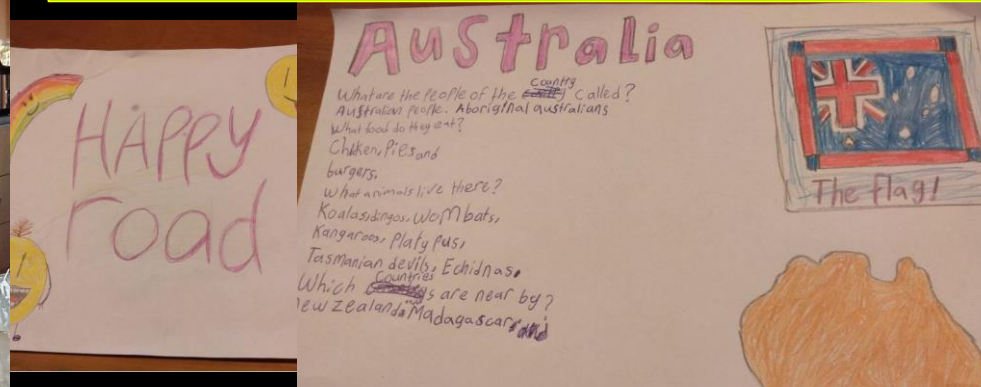 HAPPY
road
Australia
What are the people of the country called?
Australian people. Aboriginal australians
What food do they eat?
Chicken, Pies and
burgers,
What animals live there?
Koalas, dingos, WOMbats,
Kangaroos, Platypus,
Tasmanian devils, Echidnas.
Which Countries are near by?
New Zealand Madagascar,
The flag!